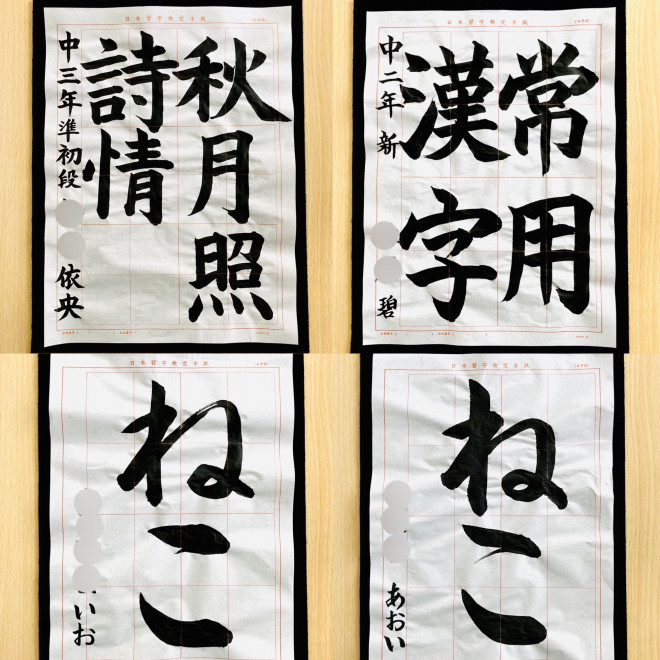 日本習字検定半紙
秋月照
詩情
中三年準初段
依央
日本習字検定半紙
常用
漢字
中二年 新
碧
日本習字検定半紙
ねこ
いお
日本習字検定半紙
ねこ
あおい